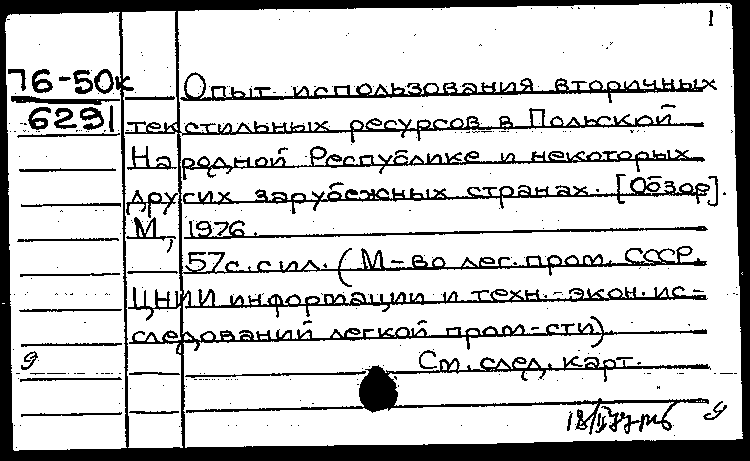 1
76-50к
6291
Опыт использования вторичных
текстильных ресурсов в Польской
Народной Республике и некоторых
других зарубежных странах. [Обзор].
М., 1976.
57с. с ил. (М-во лег. пром. СССР.
ЦНИИ информации и техн.-экон. ис-
следований легкой пром-сти).
См. след. карт.
9
9